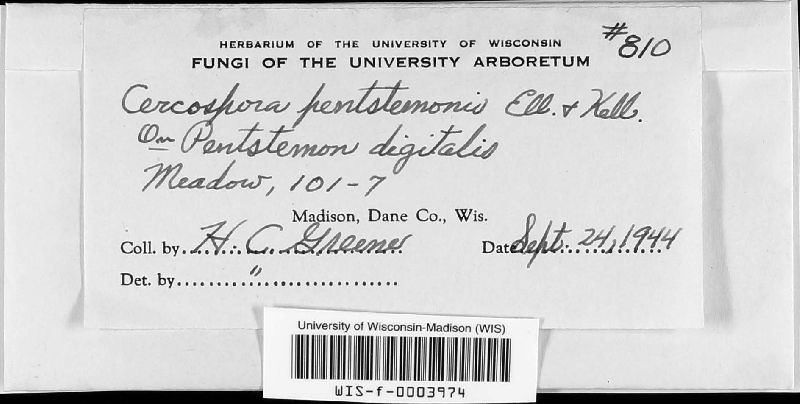 HERBARIUM OF THE UNIVERSITY OF WISCONSIN
#810
FUNGI OF THE UNIVERSITY ARBORETUM
Cercospora pentstemonis Ell. & Kell.
On Pentstemon digitalis
Meadow, 101-7
Madison, Dane Co., Wis.
Coll. by H. C. Greene Date Sept. 24, 1944
Det. by "
University of Wisconsin-Madison (WIS)
WIS-f-0003974